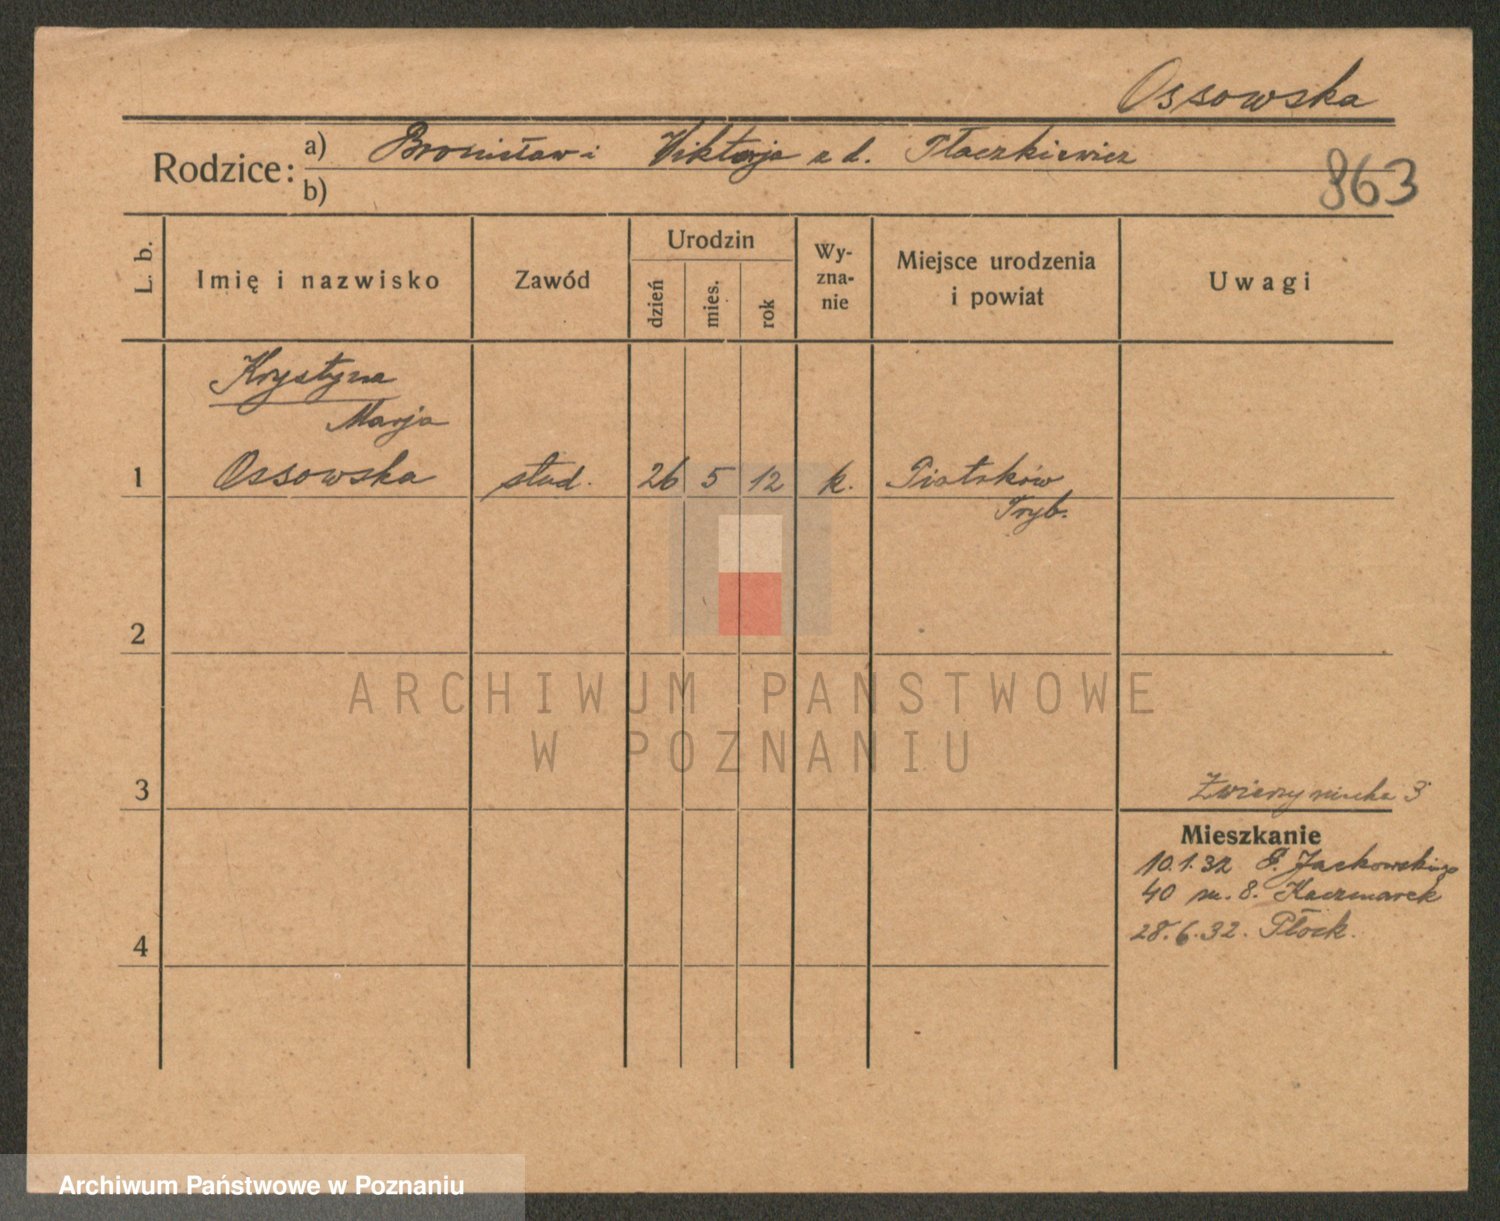 Ossowska
Rodzice: a) Bronisław i Wiktorja z d. Płaczkiewicz
b)
863
L. b.
Imię i nazwisko
Zawód
Urodzin
dzień
mies.
rok
Wy-
zna-
nie
Miejsce urodzenia
i powiat
Uwagi
Krystyna
Marja
1 Ossowska stud. 26 5 12 k. Piotrków
Tryb.
2
ARCHIWUM PAŃSTWOWE
W POZNANIU
3
Zwierzyniecka 3
Mieszkanie
10.1.32 G. Jackowskiego
40 m. 8. Kaczmarek
28.6.32. Płock.
4
Archiwum Państwowe w Poznaniu